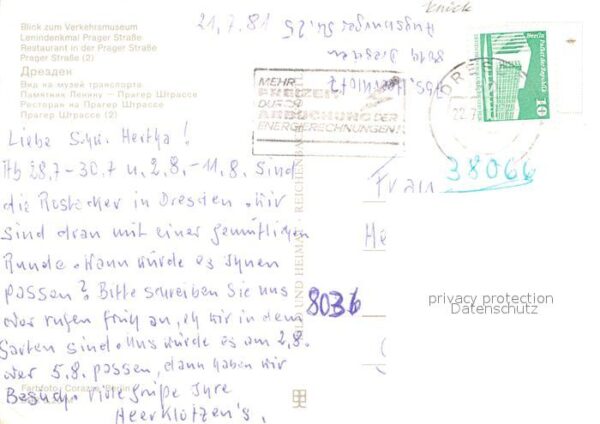 Blick zum Verkehrsmuseum
Lenindenkmal Prager Straße
Restaurant in der Prager Straße
Prager Straße (2)
Дрезден
Вид на музей транспорта
Памятник Ленину — Прагер Штрассе
Ресторан на Прагер Штрассе
Прагер Штрассе (2)
21.7.81
8019 Dresden
Knick
MEHR
FREIZEIT
DURCH
ABBUCHUNG DER
ENERGIERECHNUNGEN!
DR
22.7
10
Liebe Schw. Hertha!
Ab 28.7-30.7 u. 2.8.-11.8. sind
die Rostocker in Dresden. Wir
sind dran mit einer gemütlichen
Runde. Wann würde es Ihnen
passen? Bitte schreiben Sie uns
oder rufen früh an, eh wir in dem
Garten sind. Uns würde es am 2.8.
oder 5.8. passen, dann haben wir
Besuch. Viele Grüße Ihre
Heerklotzen's.
Farbfoto: Corazza, Berlin
BILD UND HEIMAT REICHENBACH
Frau
38066
He
8036
privacy protection
Datenschutz